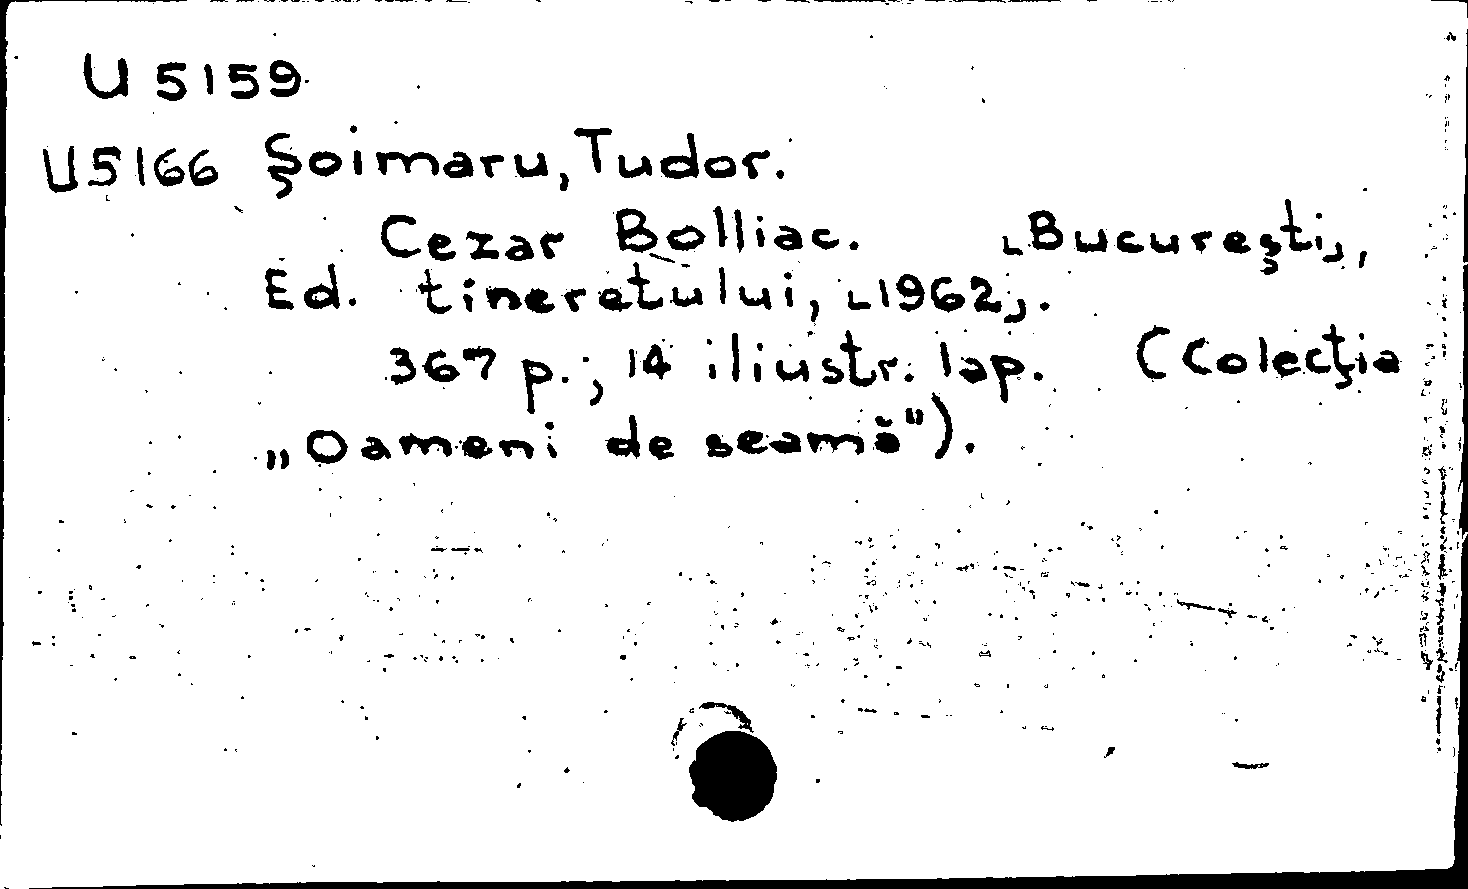 U 5159
U5166 Şoimaru, Tudor.
Cezar Bolliac. [Bucureşti],
Ed. tineretului, [1962].
367 p.; 14 iliustr. lap. (Colecţia
„Oameni de seamă").